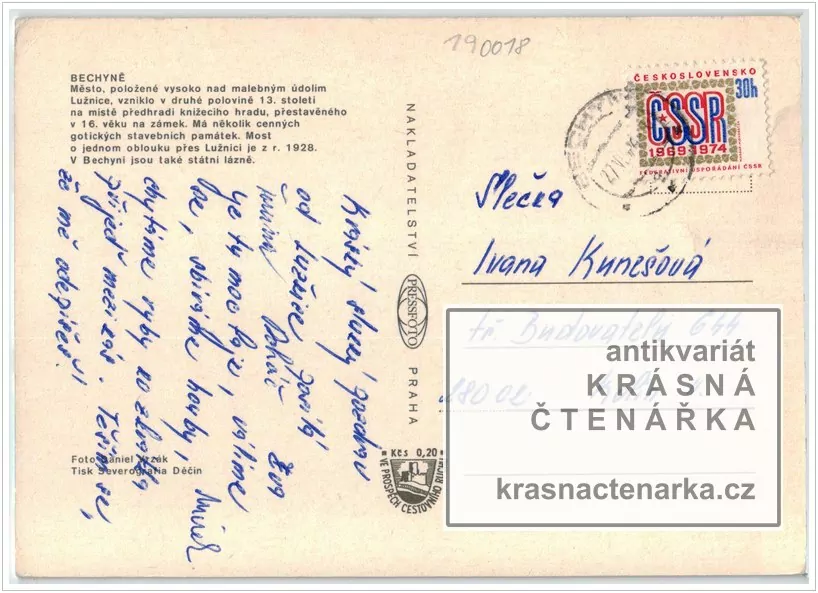 190018
BECHYNĚ
Město, položené vysoko nad malebným údolím
Lužnice, vzniklo v druhé polovině 13. století
na místě předhradí knížecího hradu, přestavěného
v 16. věku na zámek. Má několik cenných
gotických stavebních památek. Most
o jednom oblouku přes Lužnici je z r. 1928.
V Bechyni jsou také státní lázně.
Krásný slunný pozdrav
od Lužnice posílá
Eva
Je tu moc fajn, válíme
se, sbíráme houby,
chytáme ryby
přijeď mezi nás. Těším se,
že mě odepíšeš!
Foto Daniel Vrzák
Tisk Severografia Děčín
NAKLADATELSTVÍ
PRESSFOTO
PRAHA
Kčs 0,20
VE PROSPĚCH CESTOVNÍHO RUCHU
ČESKOSLOVENSKO
30h
ČSSR
1969 1974
FEDERATIVNÍ USPOŘÁDÁNÍ ČSSR
Slečna
Ivana Kunešová
tř. Budovatelů 644
280 02
antikvariát
KRÁSNÁ
ČTENÁŘKA
krasnactenarka.cz